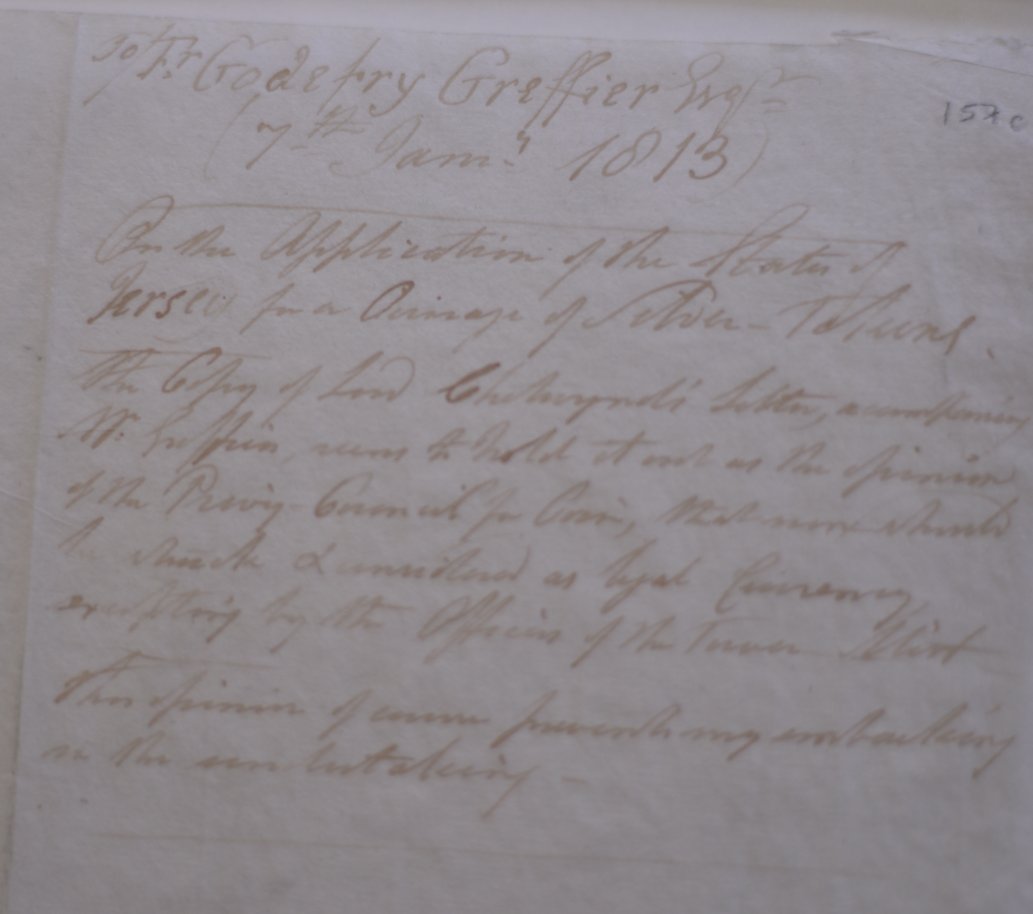 To Fr. Godefry Greffier Esqr
(7th Jany. 1813)
1570
On the Application of the States of
Jersey for a Coinage of Silver-Tokens.
The Copy of Lord Chetwynd's Letter, accompanying
seems to hold it out as the opinion
of the Privy Council for Coin, that none should
be struck & considered as legal Currency,
excepting by the Officers of the Tower Mint
This opinion of course prevents my embarking
in the undertaking –